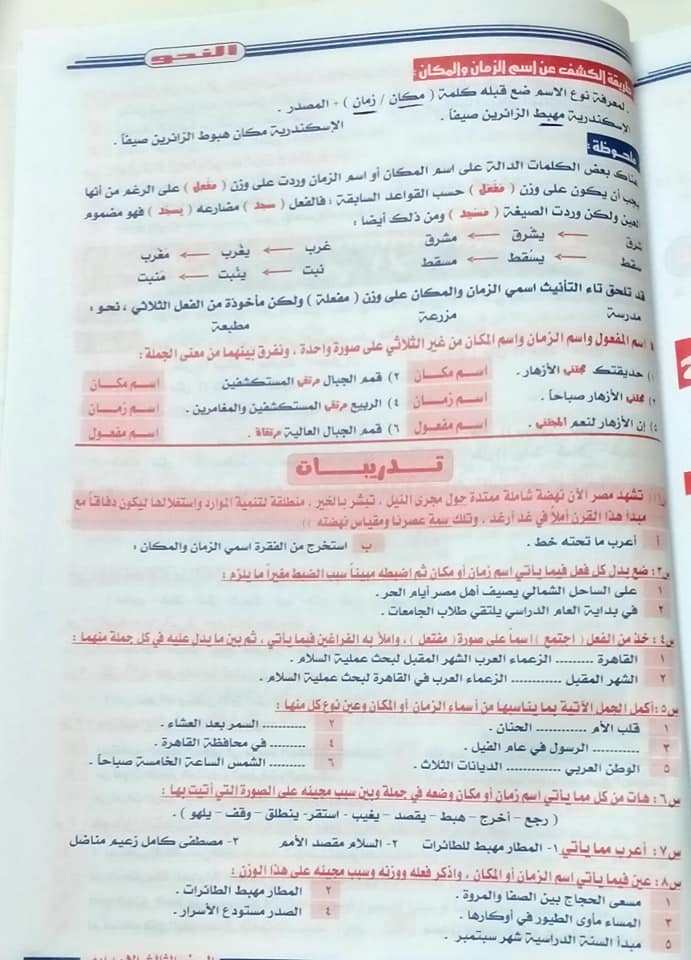 النحو
طريقة الكشف عن اسم الزمان والمكان :
لمعرفة نوع الاسم ضع قبله كلمة ( مكان / زمان ) + المصدر .
الإسكندرية مهبط الزائرين صيفاً . الإسكندرية مكان هبوط الزائرين صيفاً .
ملحوظة :
هناك بعض الكلمات الدالة على اسم المكان أو اسم الزمان وردت على وزن ( مفعل ) على الرغم من أنها
يجب أن يكون على وزن ( مفعل ) حسب القواعد السابقة ؛ فالفعل ( سجد ) مضارعه ( يسجد ) فهو مضموم
العين ولكن وردت الصيغة ( مسجد ) ومن ذلك أيضاً :
شرق ← يشرق ← مشرق غرب ← يغرب ← مغرب
سقط ← يسقط ← مسقط نبت ← ينبت ← منبت
قد تلحق تاء التأنيث اسمي الزمان والمكان على وزن ( مفعلة ) ولكن مأخوذة من الفعل الثلاثي ، نحو :
مدرسة مزرعة مطبعة
اسم المفعول واسم الزمان واسم المكان من غير الثلاثي على صورة واحدة ، ونفرق بينهما من معنى الجملة :
١) حديقتك مجتنى الأزهار . اسم مكان ٢) قمم الجبال مرتقى المستكشفين اسم مكان
٣) مجتنى الأزهار صباحاً . اسم زمان ٤) الربيع مرتقى المستكشفين والمغامرين . اسم زمان
٥) إن الأزهار لنعم المجتنى . اسم مفعول ٦) قمم الجبال العالية مرتقاة . اسم مفعول
تدريبات
س١: (( تشهد مصر الآن نهضة شاملة ممتدة حول مجرى النيل ، تبشر بالخير ، منطلقة لتنمية الموارد واستغلالها ليكون دفاقاً مع
مبدأ هذا القرن أملاً في غد أرغد ، وتلك سمة عصرنا ومقياس نهضته ))
أ أعرب ما تحته خط . ب استخرج من الفقرة اسمي الزمان والمكان :
س٣: ضع بدل كل فعل فيما يأتي اسم زمان أو مكان ثم اضبطه مبيناً سبب الضبط مغيراً ما يلزم :
١ على الساحل الشمالي يصيف أهل مصر أيام الحر .
٢ في بداية العام الدراسي يلتقي طلاب الجامعات .
س٤: خذ من الفعل ( اجتمع ) اسماً على صورة ( مفتعل ) ، واملأ به الفراغين فيما يأتي ، ثم بين ما يدل عليه في كل جملة منهما :
١ القاهرة .......... الزعماء العرب الشهر المقبل لبحث عملية السلام .
٢ الشهر المقبل .......... الزعماء العرب في القاهرة لبحث عملية السلام .
س٥: أكمل الجمل الآتية بما يناسبها من أسماء الزمان أو المكان وعين نوع كل منها :
١ قلب الأم .......... الحنان . ٢ .......... السمر بعد العشاء .
٣ .......... الرسول في عام الفيل . ٤ .......... في محافظة القاهرة .
٥ الوطن العربي .......... الديانات الثلاث . ٦ .......... الشمس الساعة الخامسة صباحاً .
س٦: هات من كل مما يأتي اسم زمان أو مكان وضعه في جملة وبين سبب مجيئه على الصورة التي أتيت بها :
( رجع – أخرج – هبط – يقصد – يغيب – استقر- ينطلق – وقف – يلهو ) .
س٧: أعرب مما يأتي ١- المطار مهبط للطائرات ٢- السلام مقصد الأمم ٣- مصطفى كامل زعيم مناضل
س٨: عين فيما يأتي اسم الزمان أو المكان ، واذكر فعله ووزنه وسبب مجيئه على هذا الوزن :
١ مسعى الحجاج بين الصفا والمروة . ٢ المطار مهبط الطائرات .
٣ المساء مأوى الطيور في أوكارها . ٤ الصدر مستودع الأسرار .
٥ مبدأ السنة الدراسية شهر سبتمبر .